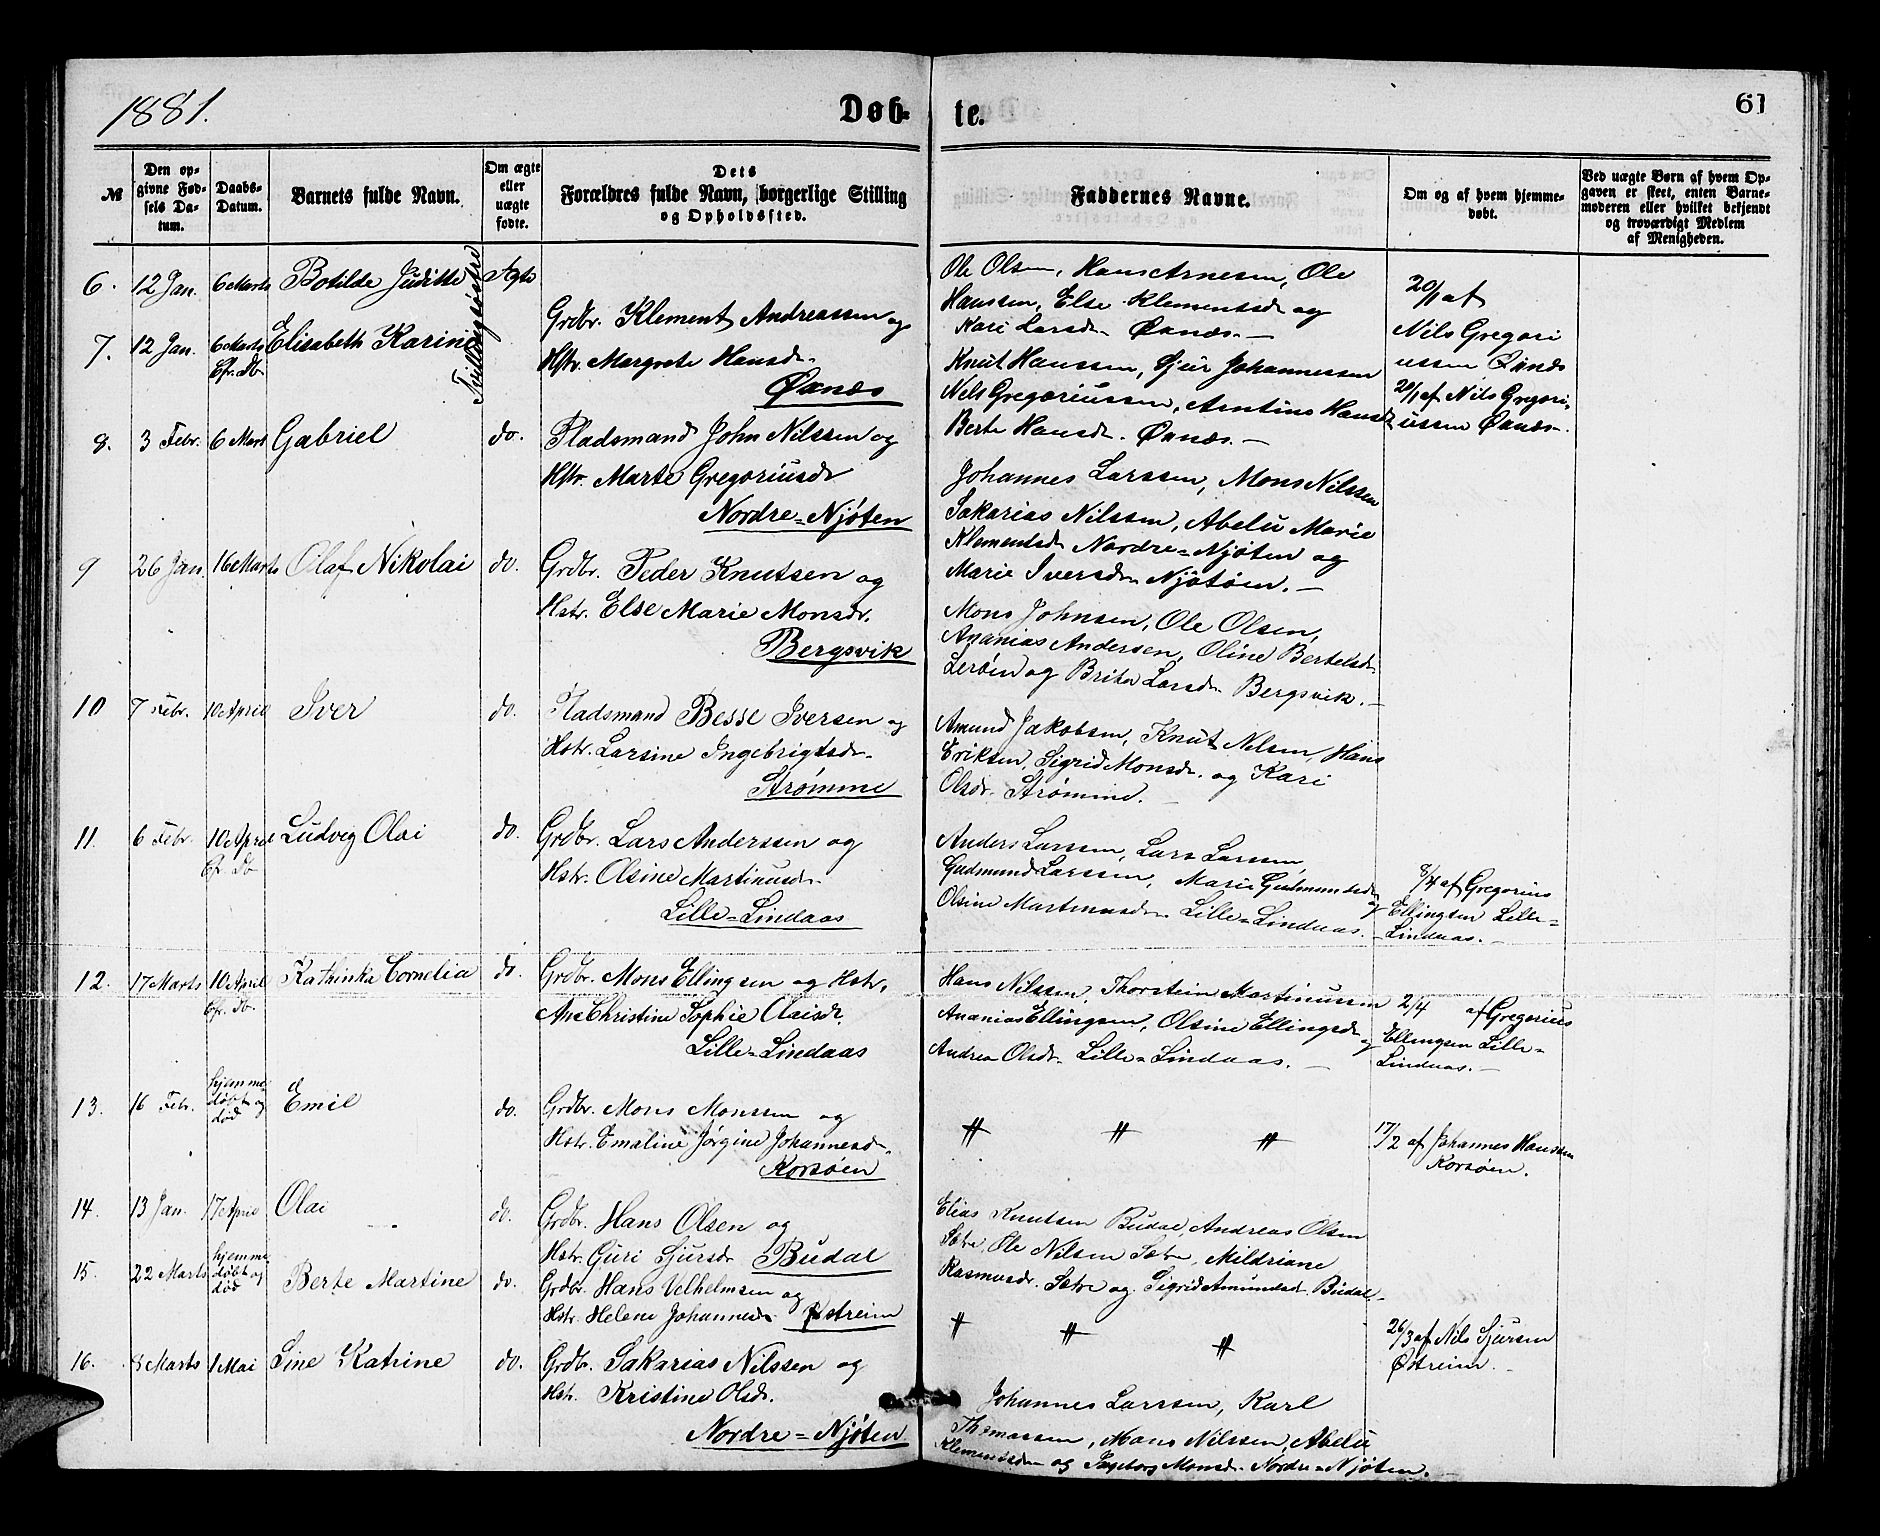 1881.
Døb-
te.
61
№
Den op-
givne Fød-
sels Da-
tum.
Daabs-
Datum.
Barnets fulde Navn.
Om ægte
eller
uægte
fødte.
Dets
Forældres fulde Navn, borgerlige Stilling
og Opholdssted.
Faddernes Navne.
Om og af hvem hjemme-
døbt.
Ved uægte Børn af hvem Op-
gaven er skeet, enten Barne-
moderen eller hvilket bekjendt
og troværdigt Medlem
af Menigheden.
6. 12 Jan. 6 Marts Botilde Juditte Ægte
Tvillingsøstre
7. 12 Jan. 6 Marts Elisabeth Karine
Cfr. Db.
Grdbr. Klement Andreassen og
Hstr. Margrete Hansdr.
Øxnæs
Ole Olsen, Hans Arnesen, Ole
Hanssen, Else Klementsdr og
Kari Larsdr Øxnæs. —
Knut Hanssen, Sjur Johannessen
Nels Gregoriussen, Arntine Hansdr
Berte Hansdr. Øxnæs. —
20/1 af
Nils Gregori
ussen Øxnæs
20/1 af Nils Gregori-
ussen Øxnæs.
8. 3 Febr. 6 Mart Gabriel do. Pladsmand John Nilssen og
Hstr. Marte Gregoriusdr
Nordre=Njøten
Johannes Larssen, Mons Nilssen
Sakarias Nilssen, Abelu Marie
Klementsdr Nordre=Njøten og
Marie Iversdr Njøtøen. —
9 26 Jan. 16 Marts Olaf Nikolai do. Grdbr. Peder Knutsen og
Hstr. Else Marie Monsdr.
Bergsvik
Mons Johnsen, Ole Olsen,
Ananias Andersen, Oline Bertelsdr
Lerøen og Brita Larsdr Bergsvik. —
10 7 Febr. 10 April Iver do. Pladsmand Besse Iversen og
Hstr. Larsine Ingebrigtsdr.
Strømme
Amund Jakobsen, Knut Nilsen, Hans
Eriksen, Sigrid Monsdr. og Kari
Olsdr. Strømme. —
11. 6 Febr. 10 April Ludvig Olai do. Grdbr. Lars Anderssen og
Cfr. Db
Hstr. Olsine Martinusdr.
Lille=Lindaas
Anders Larssen, Lars Larssen,
Gudmund Larssen, Marie Gudmundsdr
og
Olsine Martinusdr Lille=Lindaas. —
8/4 af Gregorius
Ellingsen Lille=
Lindaas. —
12. 17 Marts 10 April Kathinka Cornelia do. Grdbr. Mons Ellingsen og Hstr.
Cfr. Db.
Ane Christine Sophie Olaisdr.
Lille=Lindaas
Hans Nilssen, Thorstein Martinussen
Ananias Ellingsen, Olsine Ellingsdr
og
Andrea Olsdr Lille=Lindaas. —
2/4 af Gregorius
Ellingsen Lille=
Lindaas. —
13. 16 Febr. hjemme
døbt og
død
Emil do. Grdbr. Mons Monssen og
Hstr. Emaline Jørgine Johannesdr.
Korsøen
〃 〃 〃
17/2 af Johannes Hanssen
Korsøen.
14. 13 Jan. 17 April Olai do. Grdbr. Hans Olsen og
Hstr. Guri Sjursdr Budal
Elias Knutsen Budal, Andreas Olsen
Sætre, Ole Nilsen Sætre, Mildriane
Rasmusdr. Sætre og Sigrid Amundsdr. Budal. —
15. 22 Marts hjemme
døbt og
død
Berte Martine do. Grdbr. Hans Velhelmsen og
Hstr. Helene Johannesdr. Østreim
〃 〃 〃
26/3 af Nils Sjursen
Østreim. —
16. 8 Marts 1 Mai Sine Katrine do. Grdbr. Sakarias Nilssen og
Hstr. Kristine Olsdr.
Nordre=Njøten
Johannes Larssen, Karl
Thomassen, Mons Nilssen, Abelu
Klementsdr og Ingeborg Monsdr. Nordre=Njøten. —